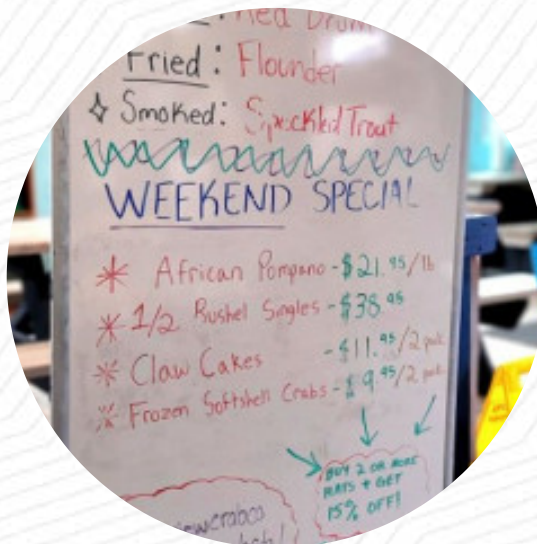 Red Drum
Fried: Flounder
Smoked: Speckled Trout
WEEKEND SPECIAL
African Pompano - $21.95/lb
1/2 Bushel Singles - $38.95
Claw Cakes - $11.95/2 pack
Frozen Softshell Crabs - $9.95/2 pack
BUY 2 OR MORE
15% OFF!
+ GET